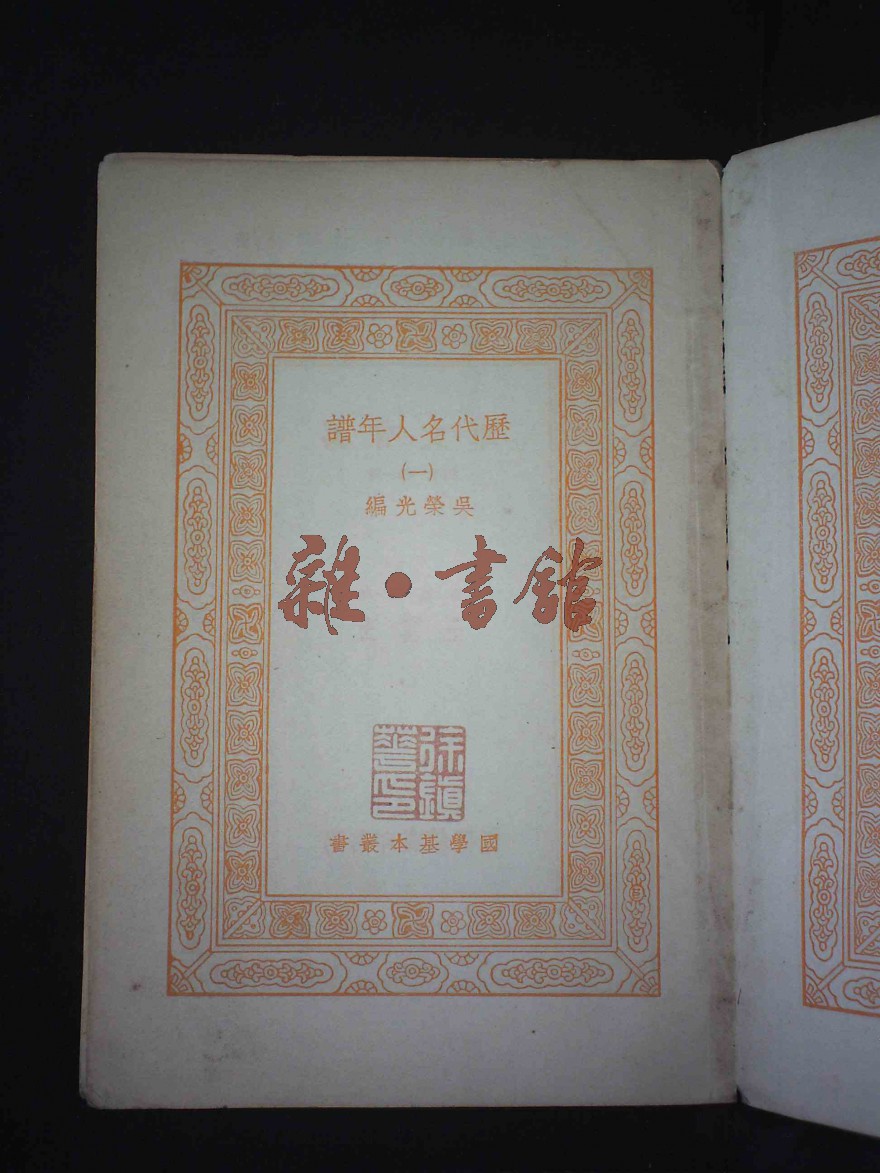 歷代名人年譜
(一)
吳榮光編
雜·書館
徐鎮
華印
國學基本叢書